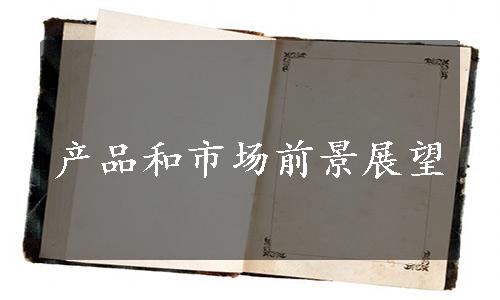 产品和市场前景展望